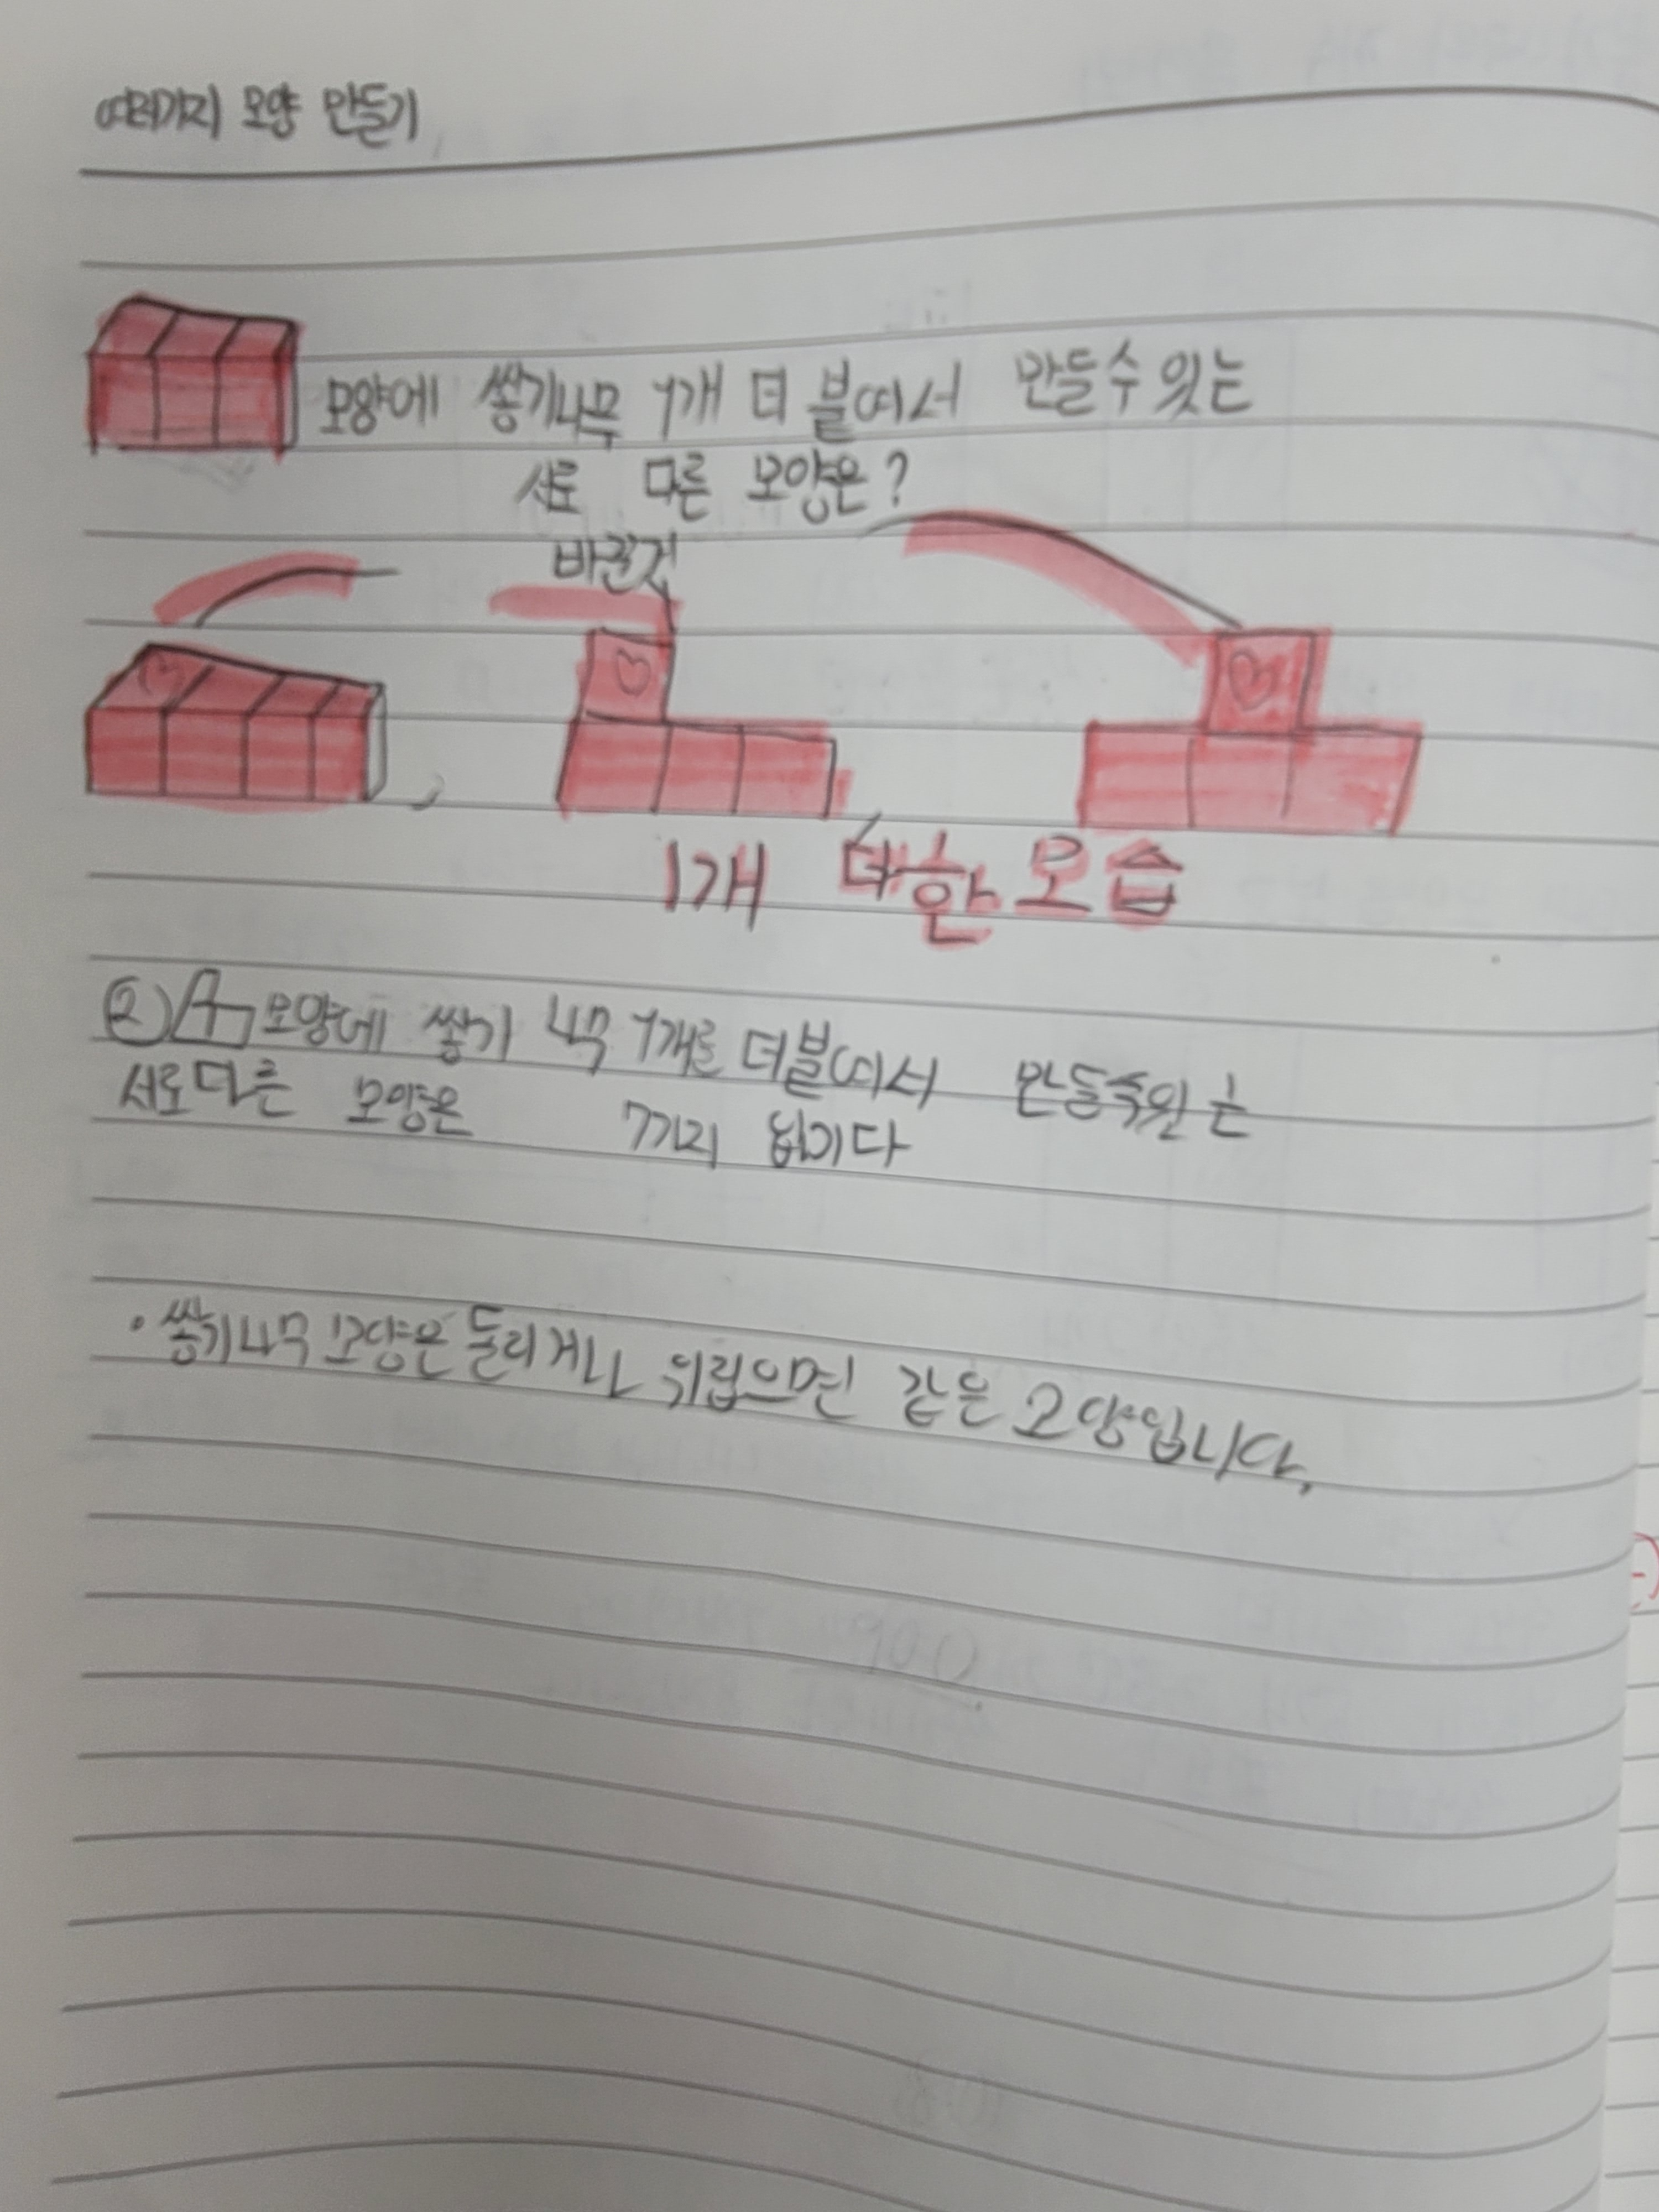 여러가지 모양 만들기
모양에 쌓기나무 1개 더 붙여서 만들수 있는
서로 다른 모양은?
바뀐것
1개 더한 모습
② 모양에 쌓기 나무 1개를 더붙여서 만들수있는
서로다른 모양은 7가지
·쌓기나무 모양은 돌리게나 뒤립으면 같은 모양입니다.